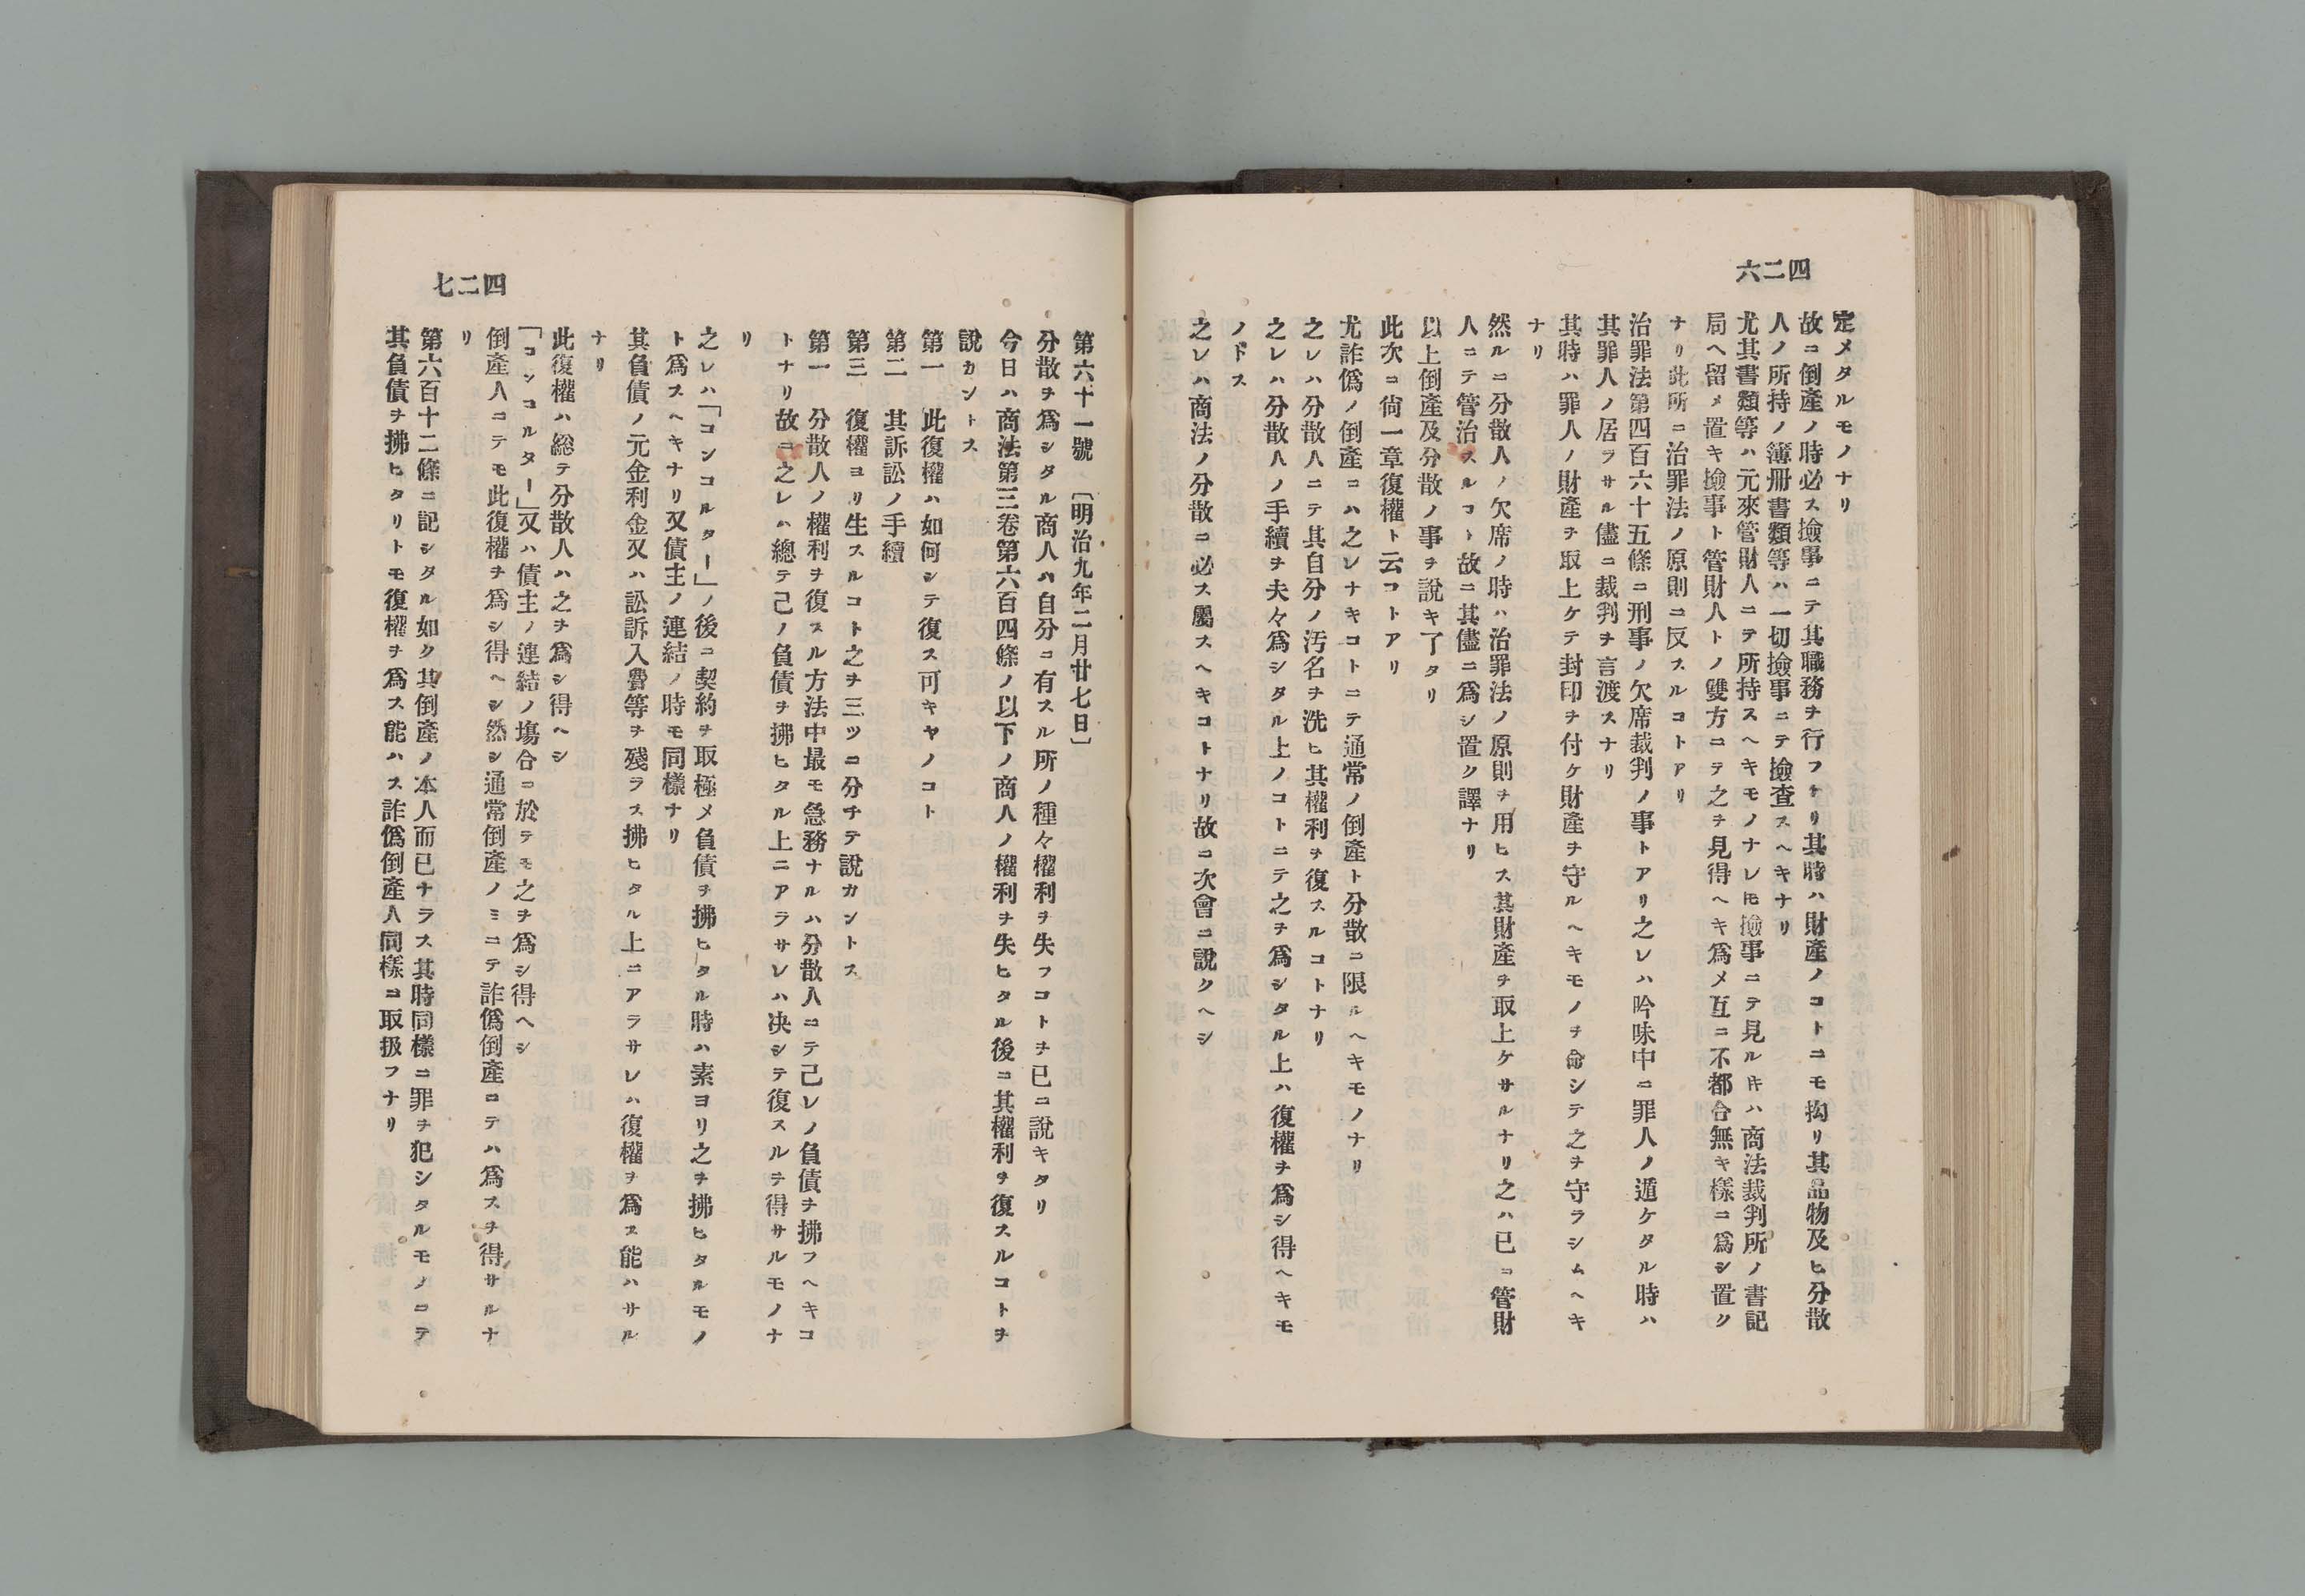 四二六
定メタルモノナリ
故ニ倒產ノ時必ス撿事ニテ其職務ヲ行フナリ其時ハ財產ノコトニモ拘リ其品物及ヒ分散
人ノ所持ノ簿册書類等ハ一切撿事ニテ撿查スヘキナリ
尤其書類等ハ元來管財人ニテ所持スヘキモノナレ𪜈撿事ニテ見ルキハ商法裁判所ノ書記
局ヘ留メ置キ撿事ト管財人トノ雙方ニテ之ヲ見得ヘキ爲メ互ニ不都合無キ樣ニ爲シ置ク
ナリ此所ニ治罪法ノ原則ニ反スルコトアリ
治罪法第四百六十五條ニ刑事ノ欠席裁判ノ事トアリ之レハ吟味中ニ罪人ノ遁ケタル時ハ
其罪人ノ居ヲサル儘ニ裁判ヲ言渡スナリ
其時ハ罪人ノ財產ヲ取上ケテ封印ヲ付ケ財產ヲ守ルヘキモノヲ命シテ之ヲ守ラシムヘキ
ナリ
然ルニ分散人ノ欠席ノ時ハ治罪法ノ原則ヲ用ヒス其財產ヲ取上ケサルナリ之ハ已ニ管財
人ニテ管治スルコト故ニ其儘ニ爲シ置ク譯ナリ
以上倒產及分散ノ事ヲ說キ了タリ
此次ニ尙一章復權ト云フコトアリ
尤詐僞ノ倒產ニハ之レナキコトニテ通常ノ倒產ト分散ニ限ルヘキモノナリ
之レハ分散人ニテ其自分ノ汚名ヲ洗ヒ其權利ヲ復スルコトナリ
之レハ分散人ノ手續ヲ夫々爲シタル上ノコトニテ之ヲ爲シタル上ハ復權ヲ爲シ得ヘキモ
ノトス
之レハ商法ノ分散ニ必ス屬スヘキコトナリ故ニ次會ニ說クヘシ
四二七
第六十一號　〔明治九年二月廿七日〕
分散ヲ爲シタル商人ハ自分ニ有スル所ノ種々權利ヲ失フコトヲ已ニ說キタリ
今日ハ商法第三卷第六百四條ノ以下ノ商人ノ權利ヲ失ヒタル後ニ其權利ヲ復スルコトヲ
說カントス
第一　此復權ハ如何シテ復ス可キヤノコト
第二　其訴訟ノ手續
第三　復權ヨリ生スルコト之ヲ三ツニ分チテ說カントス
第一　分散人ノ權利ヲ復スル方法中最モ急務ナルハ分散人ニテ己レノ負債ヲ拂フヘキコ
トナリ故ニ之レハ總テ己ノ負債ヲ拂ヒタル上ニアラサレハ决シテ復スルヲ得サルモノナ
リ
之レハ「コンコルター」ノ後ニ契約ヲ取極メ負債ヲ拂ヒタル時ハ素ヨリ之ヲ拂ヒタルモノ
ト爲スヘキナリ又債主ノ連結ノ時モ同樣ナリ
其負債ノ元金利金又ハ訟訴入費等ヲ殘ラス拂ヒタル上ニアラサレハ復權ヲ爲ス能ハサル
ナリ
此復權ハ総テ分散人ハ之ヲ爲シ得ヘシ
「コンコルター」又ハ債主ノ連結ノ塲合ニ於テモ之ヲ爲シ得ヘシ
倒產人ニテモ此復權ヲ爲シ得ヘシ然シ通常倒產ノミニテ詐僞倒產ニテハ爲スヲ得サルナ
リ
第六百十二條ニ記シタル如ク其倒產ノ本人而已ナラス其時同樣ニ罪ヲ犯シタルモノニテ
其負債ヲ拂ヒタリトモ復權ヲ爲ス能ハス詐僞倒產人同樣ニ取扱フナリ